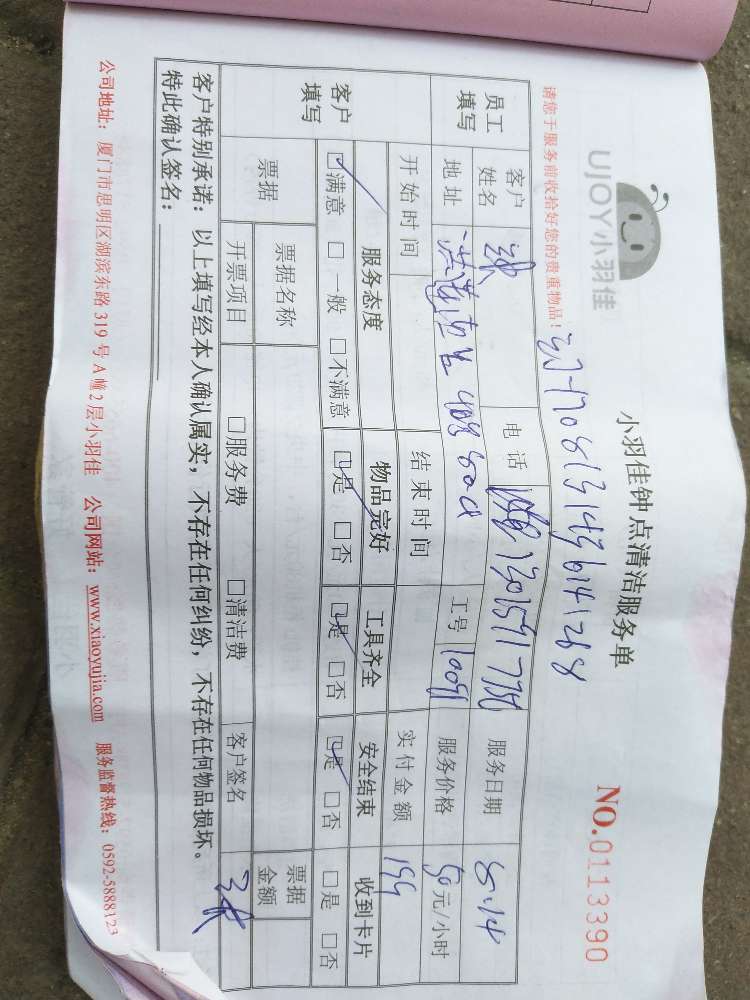 UJOY小羽佳
小羽佳钟点清洁服务单
NO.0113390
请您于服务前收拾好您的贵重物品！
员工填写
客户姓名
电话
服务日期
8.14
地址
工号
1009
服务价格
50元/小时
开始时间
结束时间
实付金额
199
客户填写
服务态度
物品完好
工具齐全
安全结束
收到卡片
☑满意 □一般 □不满意
☑是 □否
☑是 □否
☑是 □否
□是 □否
票据
票据名称
票据金额
开票项目
□服务费 □清洁费
客户签名
客户特别承诺：以上填写经本人确认属实，不存在任何纠纷，不存在任何物品损坏。
特此确认签名：
公司地址：厦门市思明区湖滨东路 319 号 A 幢 2 层小羽佳 公司网站：www.xiaoyujia.com 服务监督热线：0592-5888123